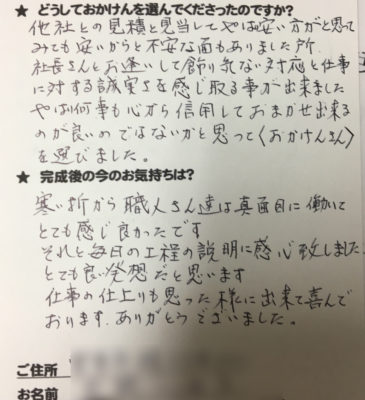 ★ どうしておかけんを選んでくださったのですか?
他社との見積と見当してやは安い方がと思って
みても安いからと不安な面もありました所、
社長さんとお逢いして飾り気ない対応と仕事
に対する誠実さを感じ取る事が出来ました
やは何事も心から信用しておまかせ出来る
のが良いのではないかと思って〈おかけんさん〉
を選びました。
★ 完成後の今のお気持ちは?
寒い折から職人さん達は真面目に働いて
とても感じ良かったです
それと毎日の工程の説明に感心致しました
とても良い発想だと思います
仕事の仕上りも思った様に出来て喜んで
おります.ありがとうございました。
ご住所
お名前